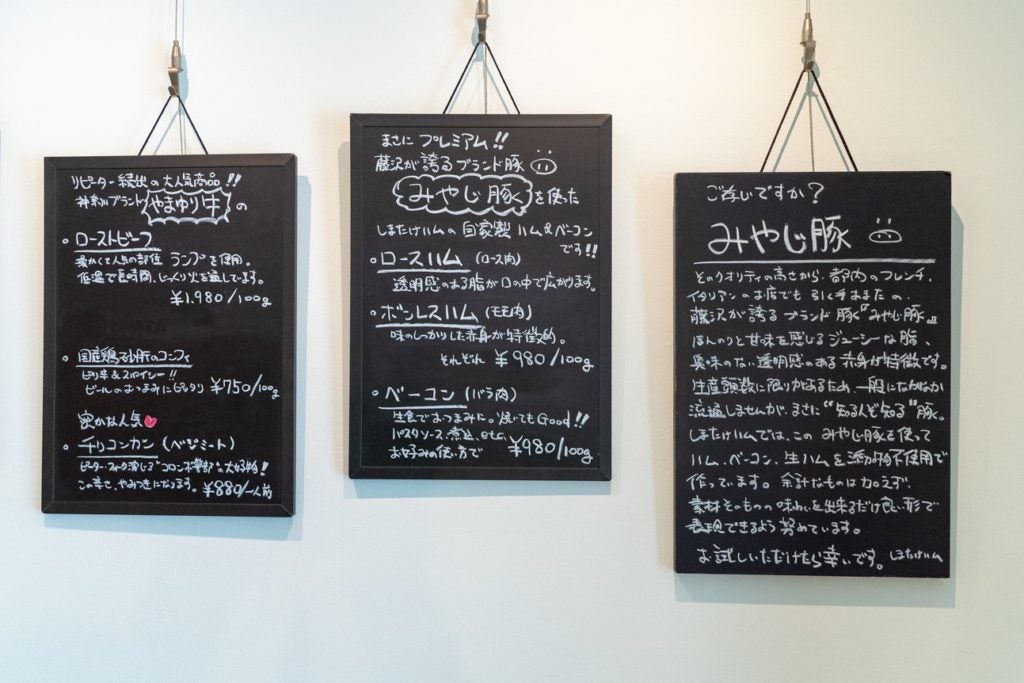 リピーター続出の大人気商品!!
神奈川ブランド やまゆり牛 の
• ローストビーフ
柔かくて人気の部位 ランプを使用。
低温で長時間、じっくり火を通しています。
¥1,980/100g
• 国産鶏砂肝のコンフィ
ピリ辛&スパイシー!!
ビールのおつまみにピッタリ ¥750/100g
密かな人気
• チリコンカン(ベジミート)
ピーター・フォーク演じる"コロンボ警部"の大好物!
この辛さ、やみつきになります。¥880/一人前
まさに プレミアム!!
藤沢が誇るブランド豚
みやじ豚 を使った
しまたけハムの 自家製 ハム&ベーコン
です!!
• ロースハム(ロース肉)
透明感のある脂が口の中で広がります。
• ボンレスハム(モモ肉)
味のしっかりした赤身が特徴的。
それぞれ ¥980/100g
• ベーコン(バラ肉)
生食でおつまみに。焼いてもGood!!
パスタソース・煮込、etc.
お好みの使い方で ¥980/100g
ご存じですか?
みやじ豚
そのクオリティの高さから、都内のフレンチ、
イタリアンのお店でも 引く手あまたの、
藤沢が誇る ブランド豚『みやじ豚』。
ほんのりと甘味を感じるジューシーな脂、
臭味のない透明感のある赤身が特徴です。
生産頭数に限りがあるため、一般になかなか
流通しませんが、まさに"知る人ぞ知る"豚。
しまたけハムでは、この みやじ豚を使って
ハム・ベーコン、生ハムを添加物不使用で
作っています。余計なものは加えず、
素材そのものの味わいを出来るだけ良い形で
表現できるよう 努めています。
お試しいただけたら幸いです。 しまたけハム